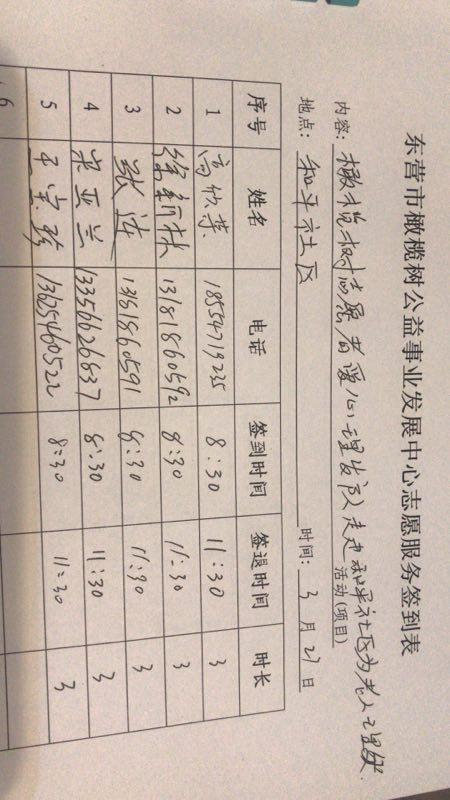 东营市橄榄树公益事业发展中心志愿服务签到表
内容: 橄榄树志愿者爱心理发队走进和平社区为老人理发 活动(项目)
地点: 和平社区 时间: 3月27日
序号 姓名 电话 签到时间 签退时间 时长
1 高欣荣 18554719235 8:30 11:30 3
2 13181860592 8:30 11:30 3
3 张洁 13181860591 8:30 11:30 3
4 宋亚兰 13356626837 8:30 11:30 3
5 王宝珍 13625460522 8:30 11:30 3
6